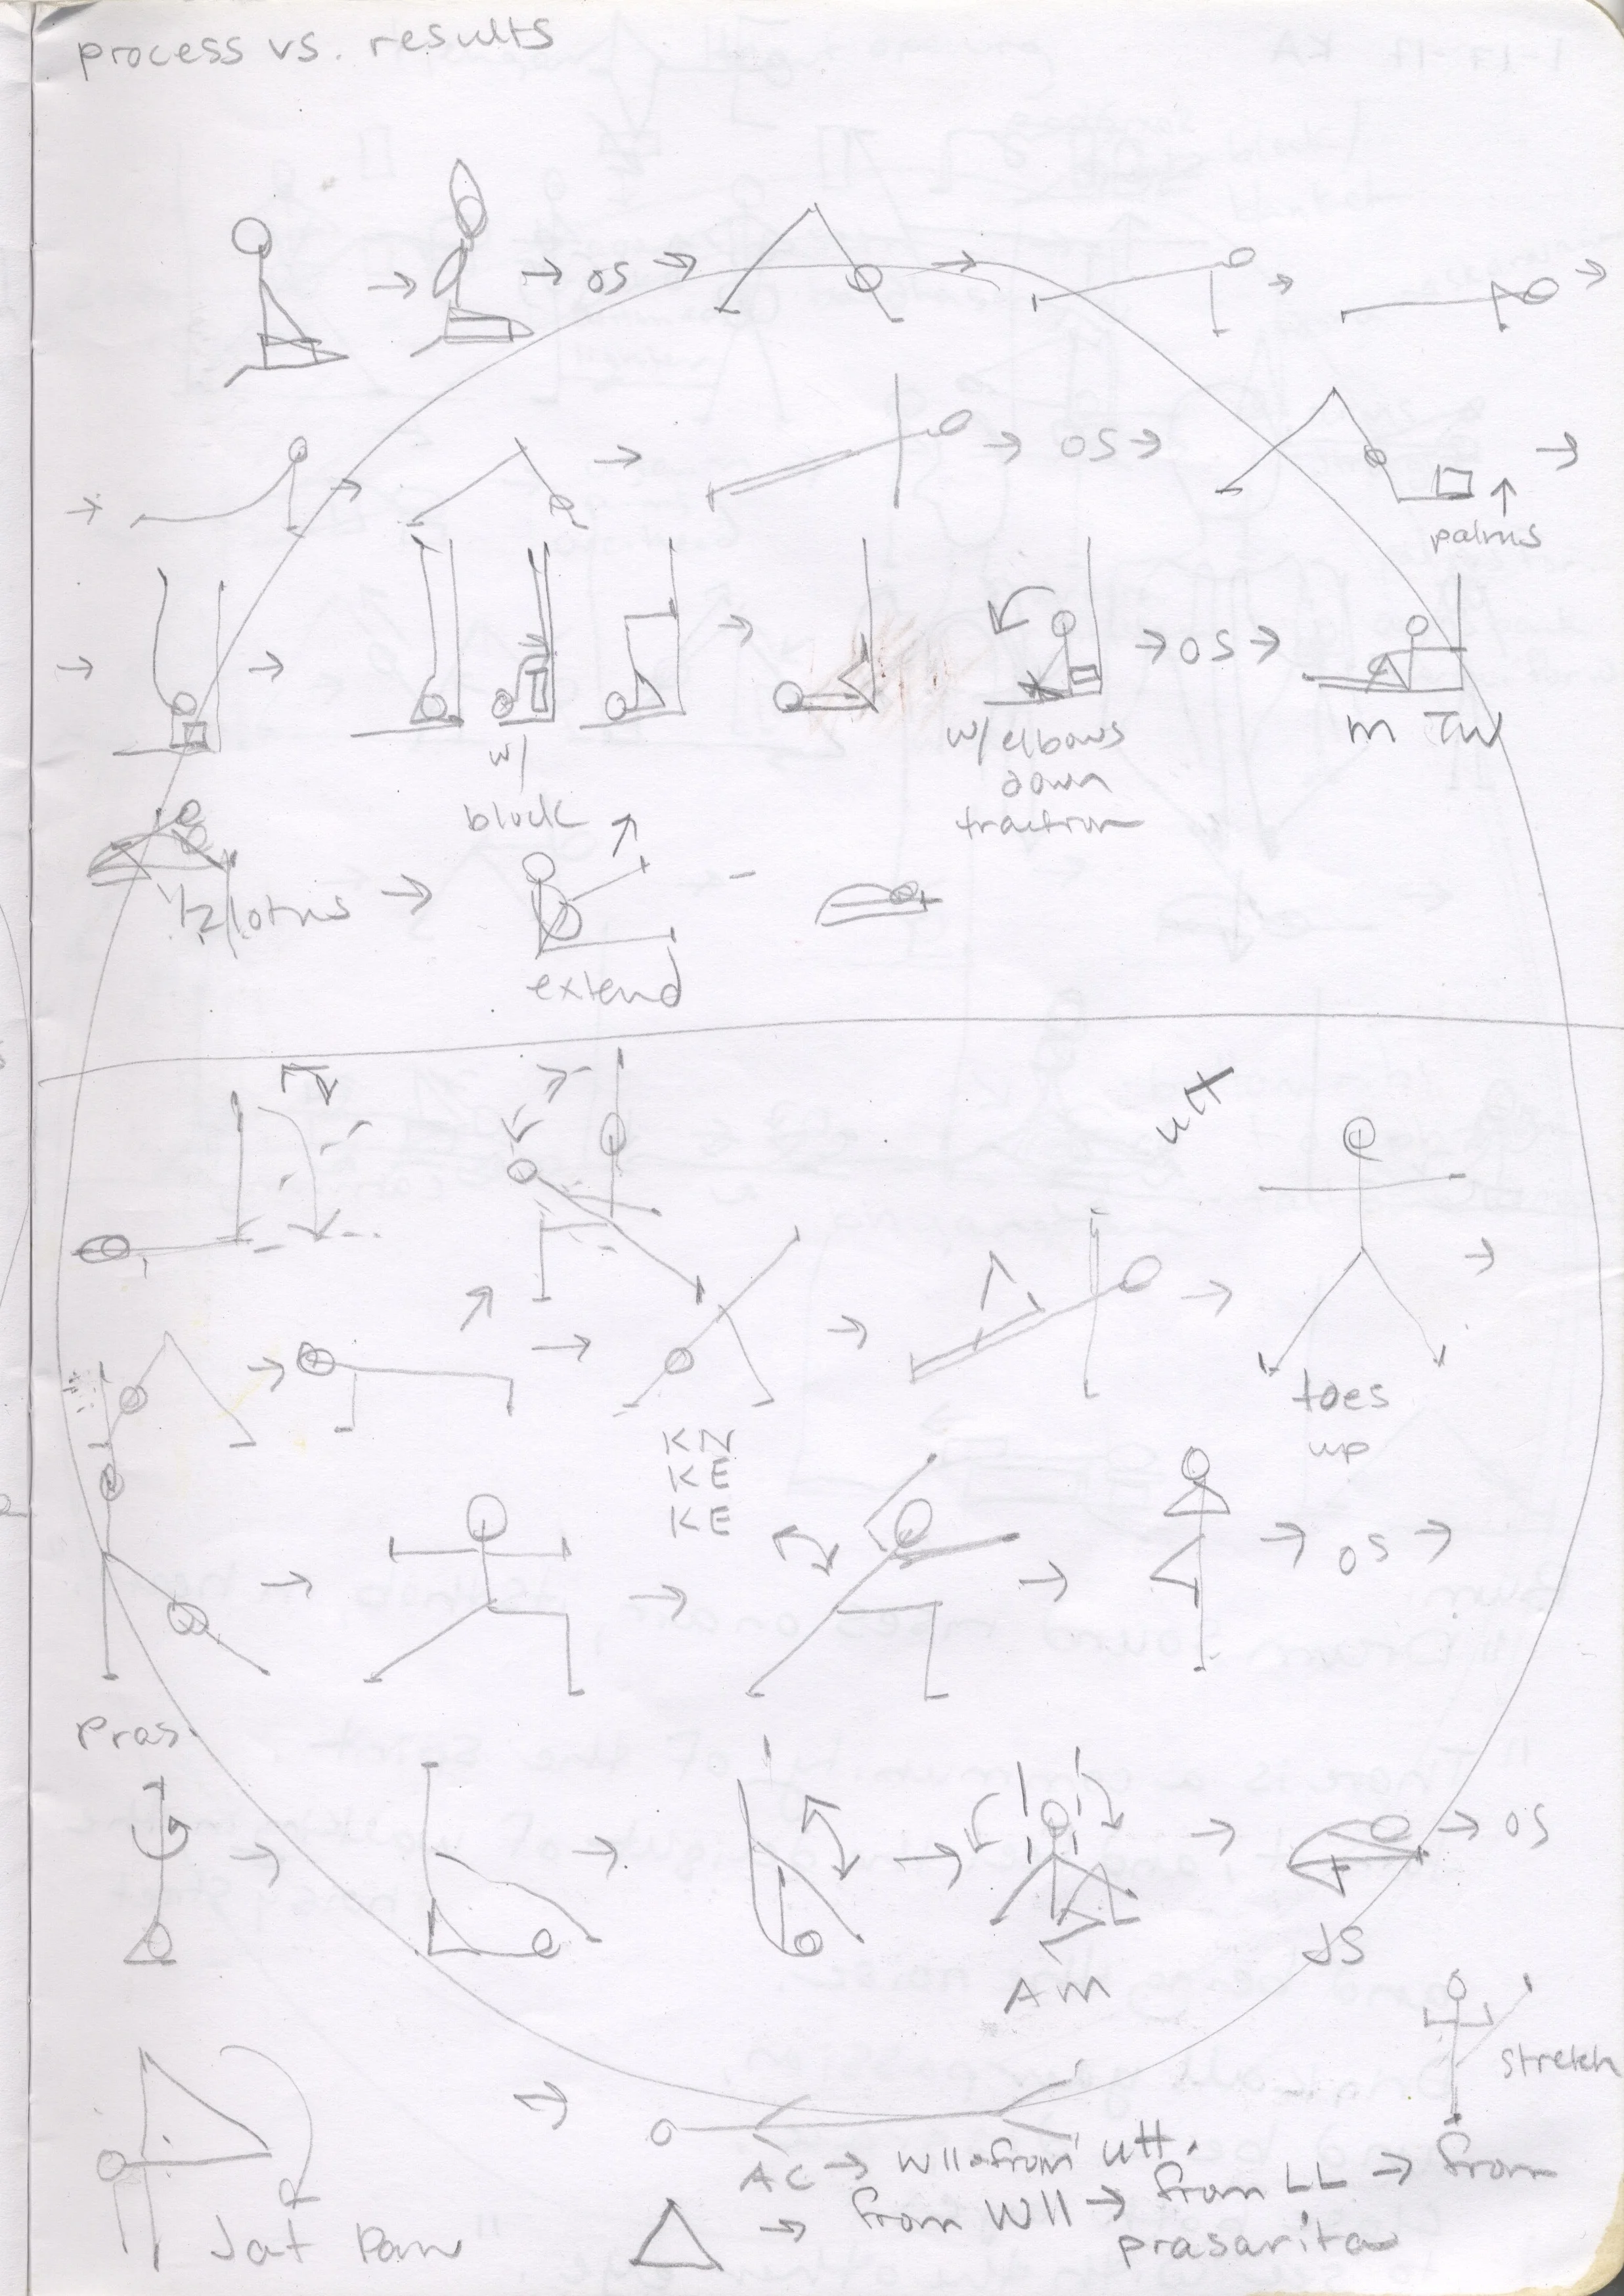 process vs. results
OS
OS
palms
w/
block
w/elbows
down
traction
OS
m
1/2 lotus
extend
utt
KN
KE
KE
toes
up
OS
Pras.
AM
JS
OS
stretch
Jat
AC → WII from utt.
△ → from WII → from LL → from
prasarita